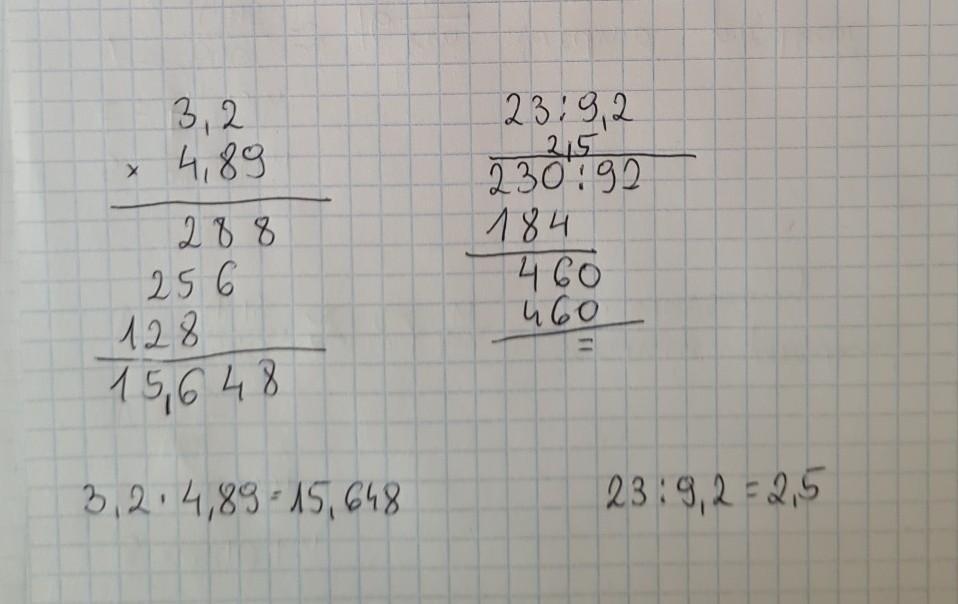 3,2
× 4,89
288
256
128
15,648
3,2 · 4,89 = 15,648
23 : 9,2
2,5
230 : 92
184
460
460
=
23 : 9,2 = 2,5